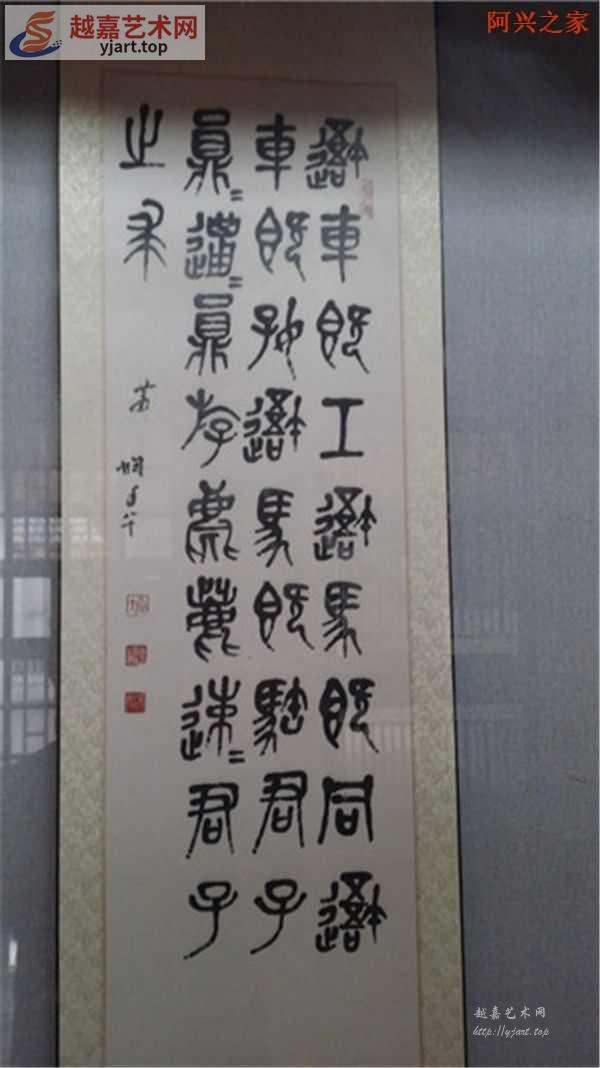 越嘉艺术网
yjart.top
阿兴之家
䢒車既工䢒馬既同䢒
車既好䢒馬既駓君子
員=邋=員斿麀鹿速=君子
之求
越嘉艺术网
http://yjart.top